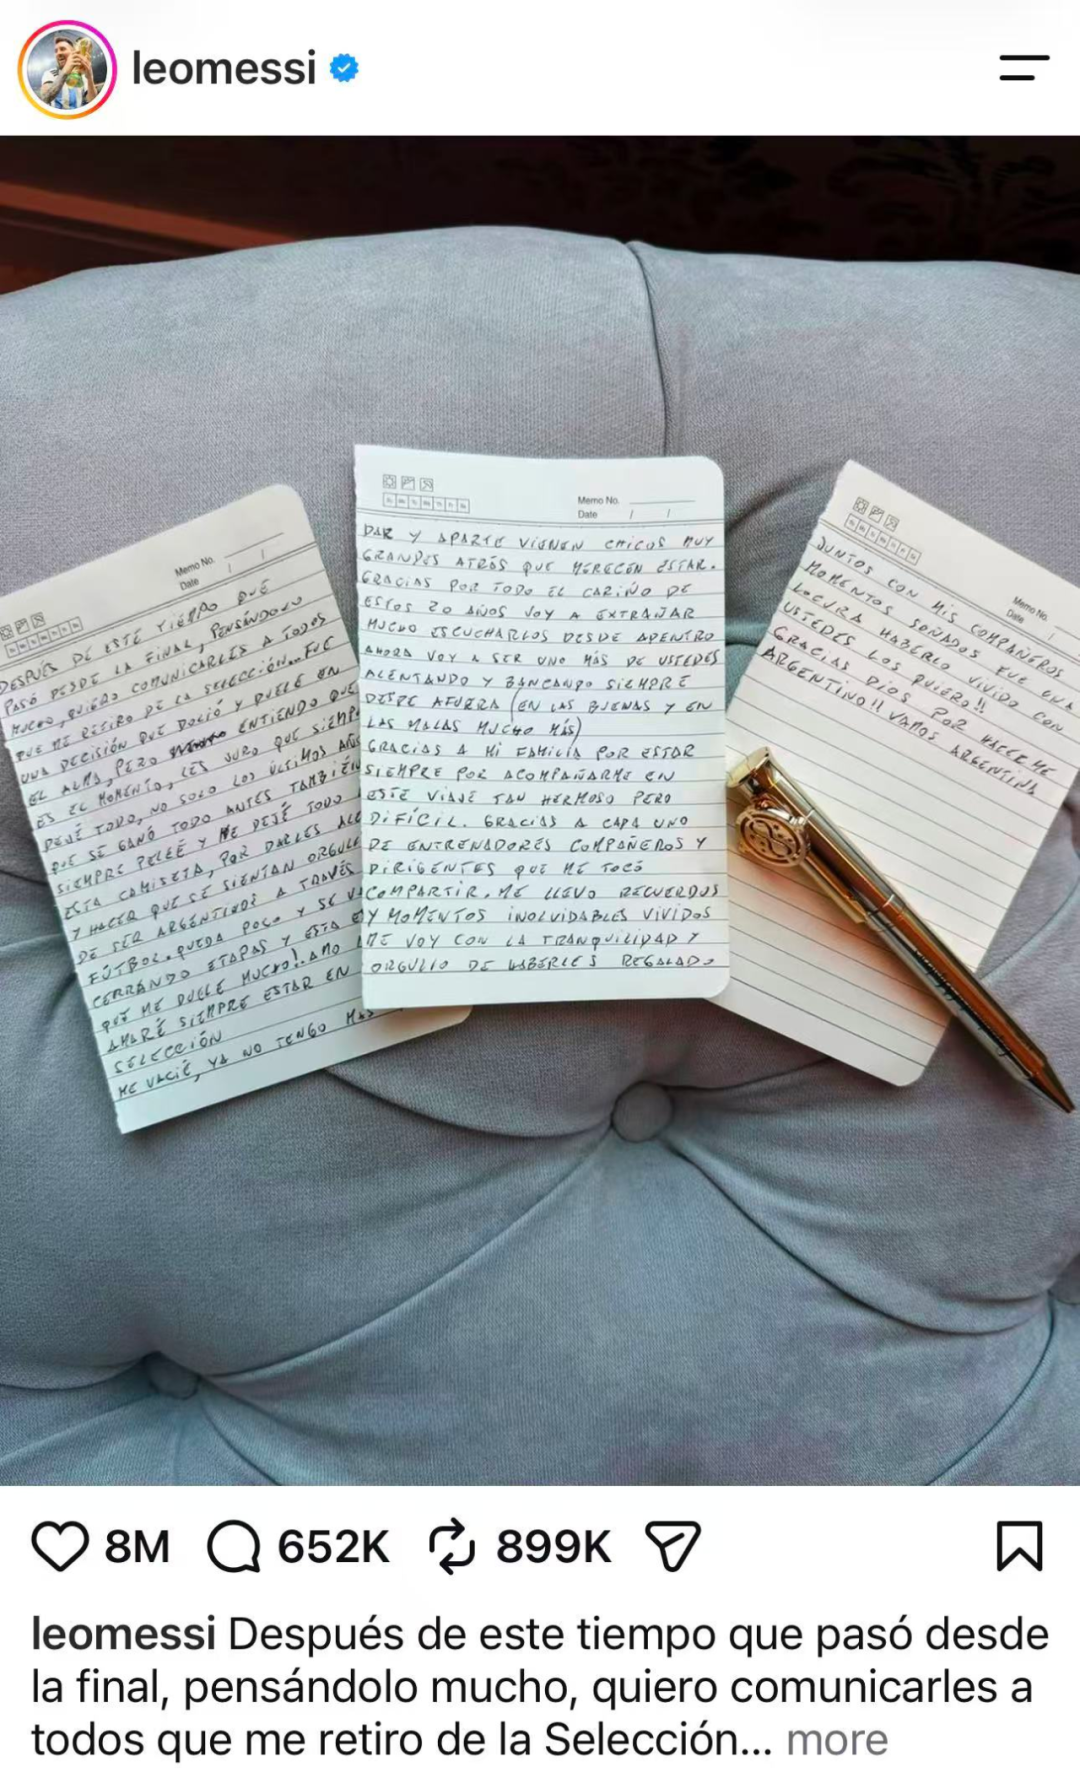 leomessi
Memo No.
Date / /
DESPUÉS DE ESTE TIEMPO QUE
PASÓ DESDE LA FINAL, PENSÁNDOLO
MUCHO, QUIERO COMUNICARLES A TODOS
QUE ME RETIRO DE LA SELECCIÓN... FUE
UNA DECISIÓN QUE DOLIÓ Y DUELE EN
EL ALMA, PERO ENTIENDO QUE
ES EL MOMENTO, LES JURO QUE SIEMP
DEJÉ TODO, NO SOLO LOS ÚLTIMOS AÑOS
QUE SE GANÓ TODO ANTES TAMBIÉN
SIEMPRE PELEÉ Y ME DEJÉ TODO
ESTA CAMISETA, POR DARLES ALE
Y HACER QUE SE SIENTAN ORGULL
DE SER ARGENTINOS A TRAVÉS
FÚTBOL. QUEDA POCO Y SE V
CERRANDO ETAPAS Y ESTA
QUE ME DUELE MUCHO! AMO
AMARÉ SIEMPRE ESTAR EN
SELECCIÓN
ME VACIÉ, YA NO TENGO MÁS
Memo No.
Date / /
DAR Y APARTE VIENEN CHICOS MUY
GRANDES ATRÁS QUE MERECEN ESTAR.
GRACIAS POR TODO EL CARIÑO DE
ESTOS 20 AÑOS VOY A EXTRAÑAR
MUCHO ESCUCHARLOS DESDE ADENTRO
AHORA VOY A SER UNO MÁS DE USTEDES
ALENTANDO Y BANCANDO SIEMPRE
DESDE AFUERA (EN LAS BUENAS Y EN
LAS MALAS MUCHO MÁS)
GRACIAS A MI FAMILIA POR ESTAR
SIEMPRE POR ACOMPAÑARME EN
ESTE VIAJE TAN HERMOSO PERO
DIFÍCIL. GRACIAS A CADA UNO
DE ENTRENADORES COMPAÑEROS Y
DIRIGENTES QUE ME TOCÓ
COMPARTIR. ME LLEVO RECUERDOS
Y MOMENTOS INOLVIDABLES VIVIDOS
ME VOY CON LA TRANQUILIDAD Y
ORGULLO DE HABERLES REGALADO
Memo No.
Date /
JUNTOS CON MIS COMPAÑEROS
MOMENTOS SOÑADOS FUE UNA
LOCURA HABERLO VIVIDO CON
USTEDES LOS QUIERO!!
GRACIAS DIOS POR HACERME
ARGENTINO!! VAMOS ARGENTINA
8M 652K 899K
leomessi Después de este tiempo que pasó desde
la final, pensándolo mucho, quiero comunicarles a
todos que me retiro de la Selección... more